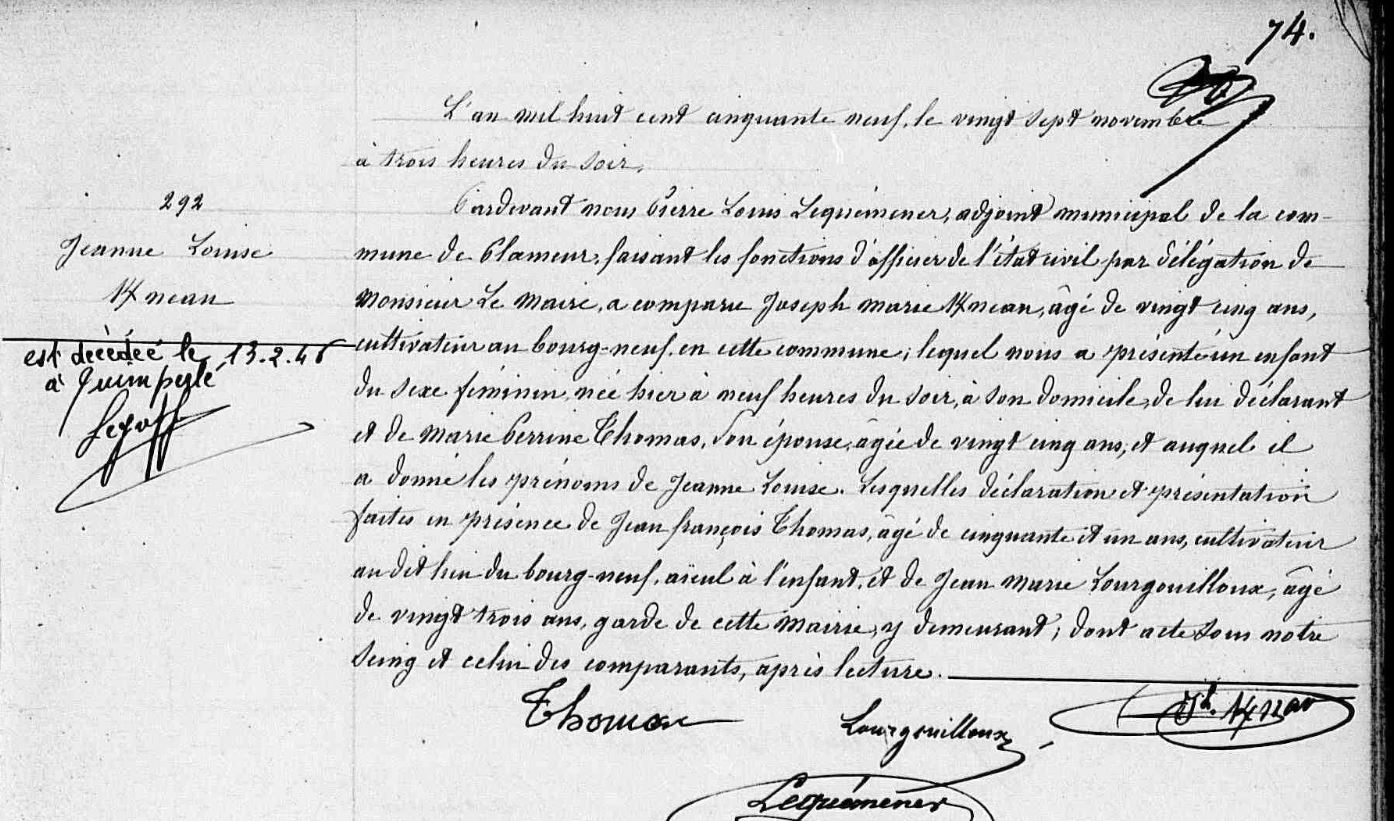 74.
L'an mil huit cent cinquante neuf, le vingt sept novembre
à trois heures du soir,
292
Jeanne Louise
K/nean
est décédée le 13.2.46
à Quimperlé
Legoff
Pardevant nous Pierre Louis Lequémener, adjoint municipal de la com-
mune de Plameur, faisant les fonctions d'officier de l'état civil par délégation de
Monsieur Le Maire, a comparu Joseph Marie K/nean, âgé de vingt cinq ans,
cultivateur au bourg-neuf, en cette commune; lequel nous a présenté un enfant
du sexe féminin, née hier à neuf heures du soir, à son domicile, de lui déclarant
et de Marie Perrine Thomas, son épouse, âgée de vingt cinq ans, et auquel il
a donné les prénoms de Jeanne Louise. Lesquelles déclaration et présentation
faites en présence de Jean françois Thomas, âgé de cinquante et un ans, cultivateur
au dit lieu du bourg-neuf, aïeul à l'enfant, et de Jean Marie Lourgouilloux, âgé
de vingt trois ans, garde de cette Mairie, y demeurant; dont acte sous notre
seing et celui des comparants, après lecture.
Thomas
Lourgouilloux
Jh. K/nean
Lequémener